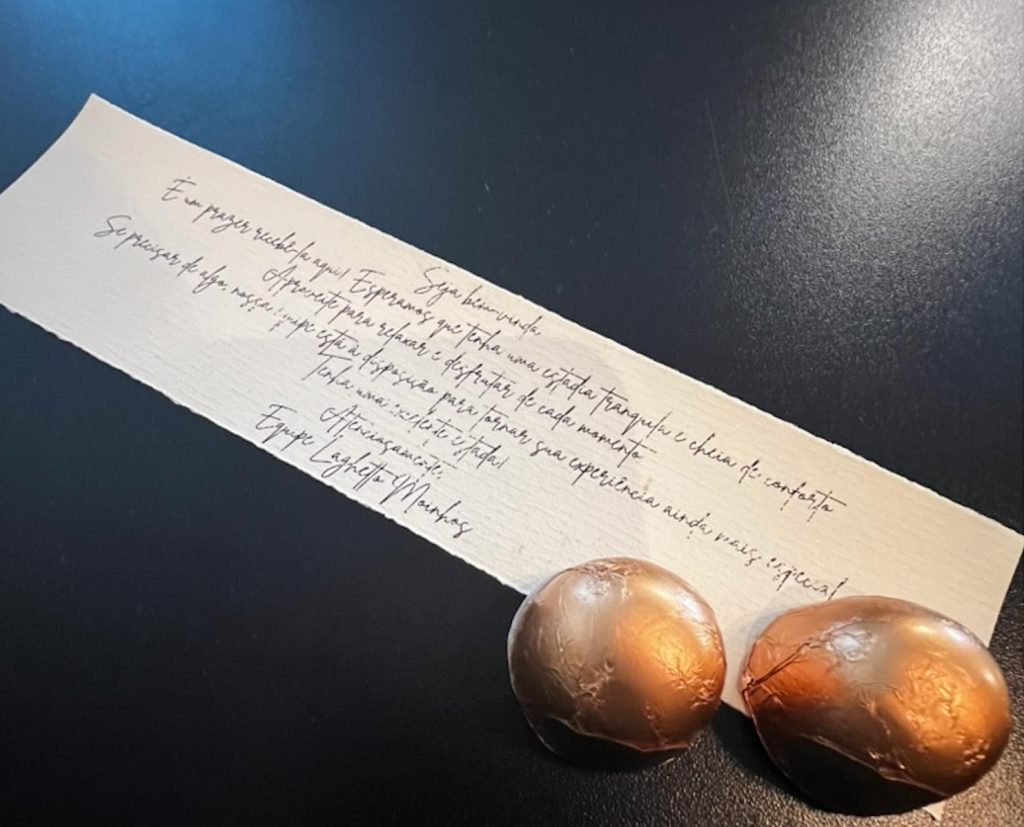 Seja bem-vinda,
É um prazer recebê-la aqui! Esperamos que tenha uma estadia tranquila e cheia de conforto
Aproveite para relaxar e desfrutar de cada momento
Se precisar de algo, nossa equipe está à disposição para tornar sua experiência ainda mais especial
Tenha uma excelente estada!
Atenciosamente,
Equipe Laghetto Moinhos